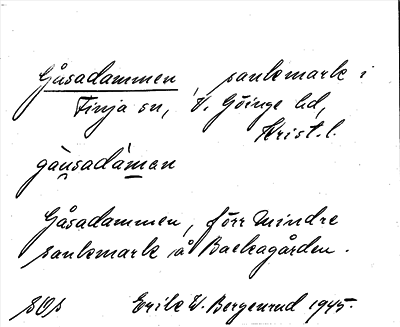 Gåsadammen, sankmark i
Finja sn, V. Göinge hd,
Krist. l.
gàu̯sadám̲en
Gåsadammen, förr mindre
sankmark å Backagården.
SOs Erik W. Bergenrud 1945.